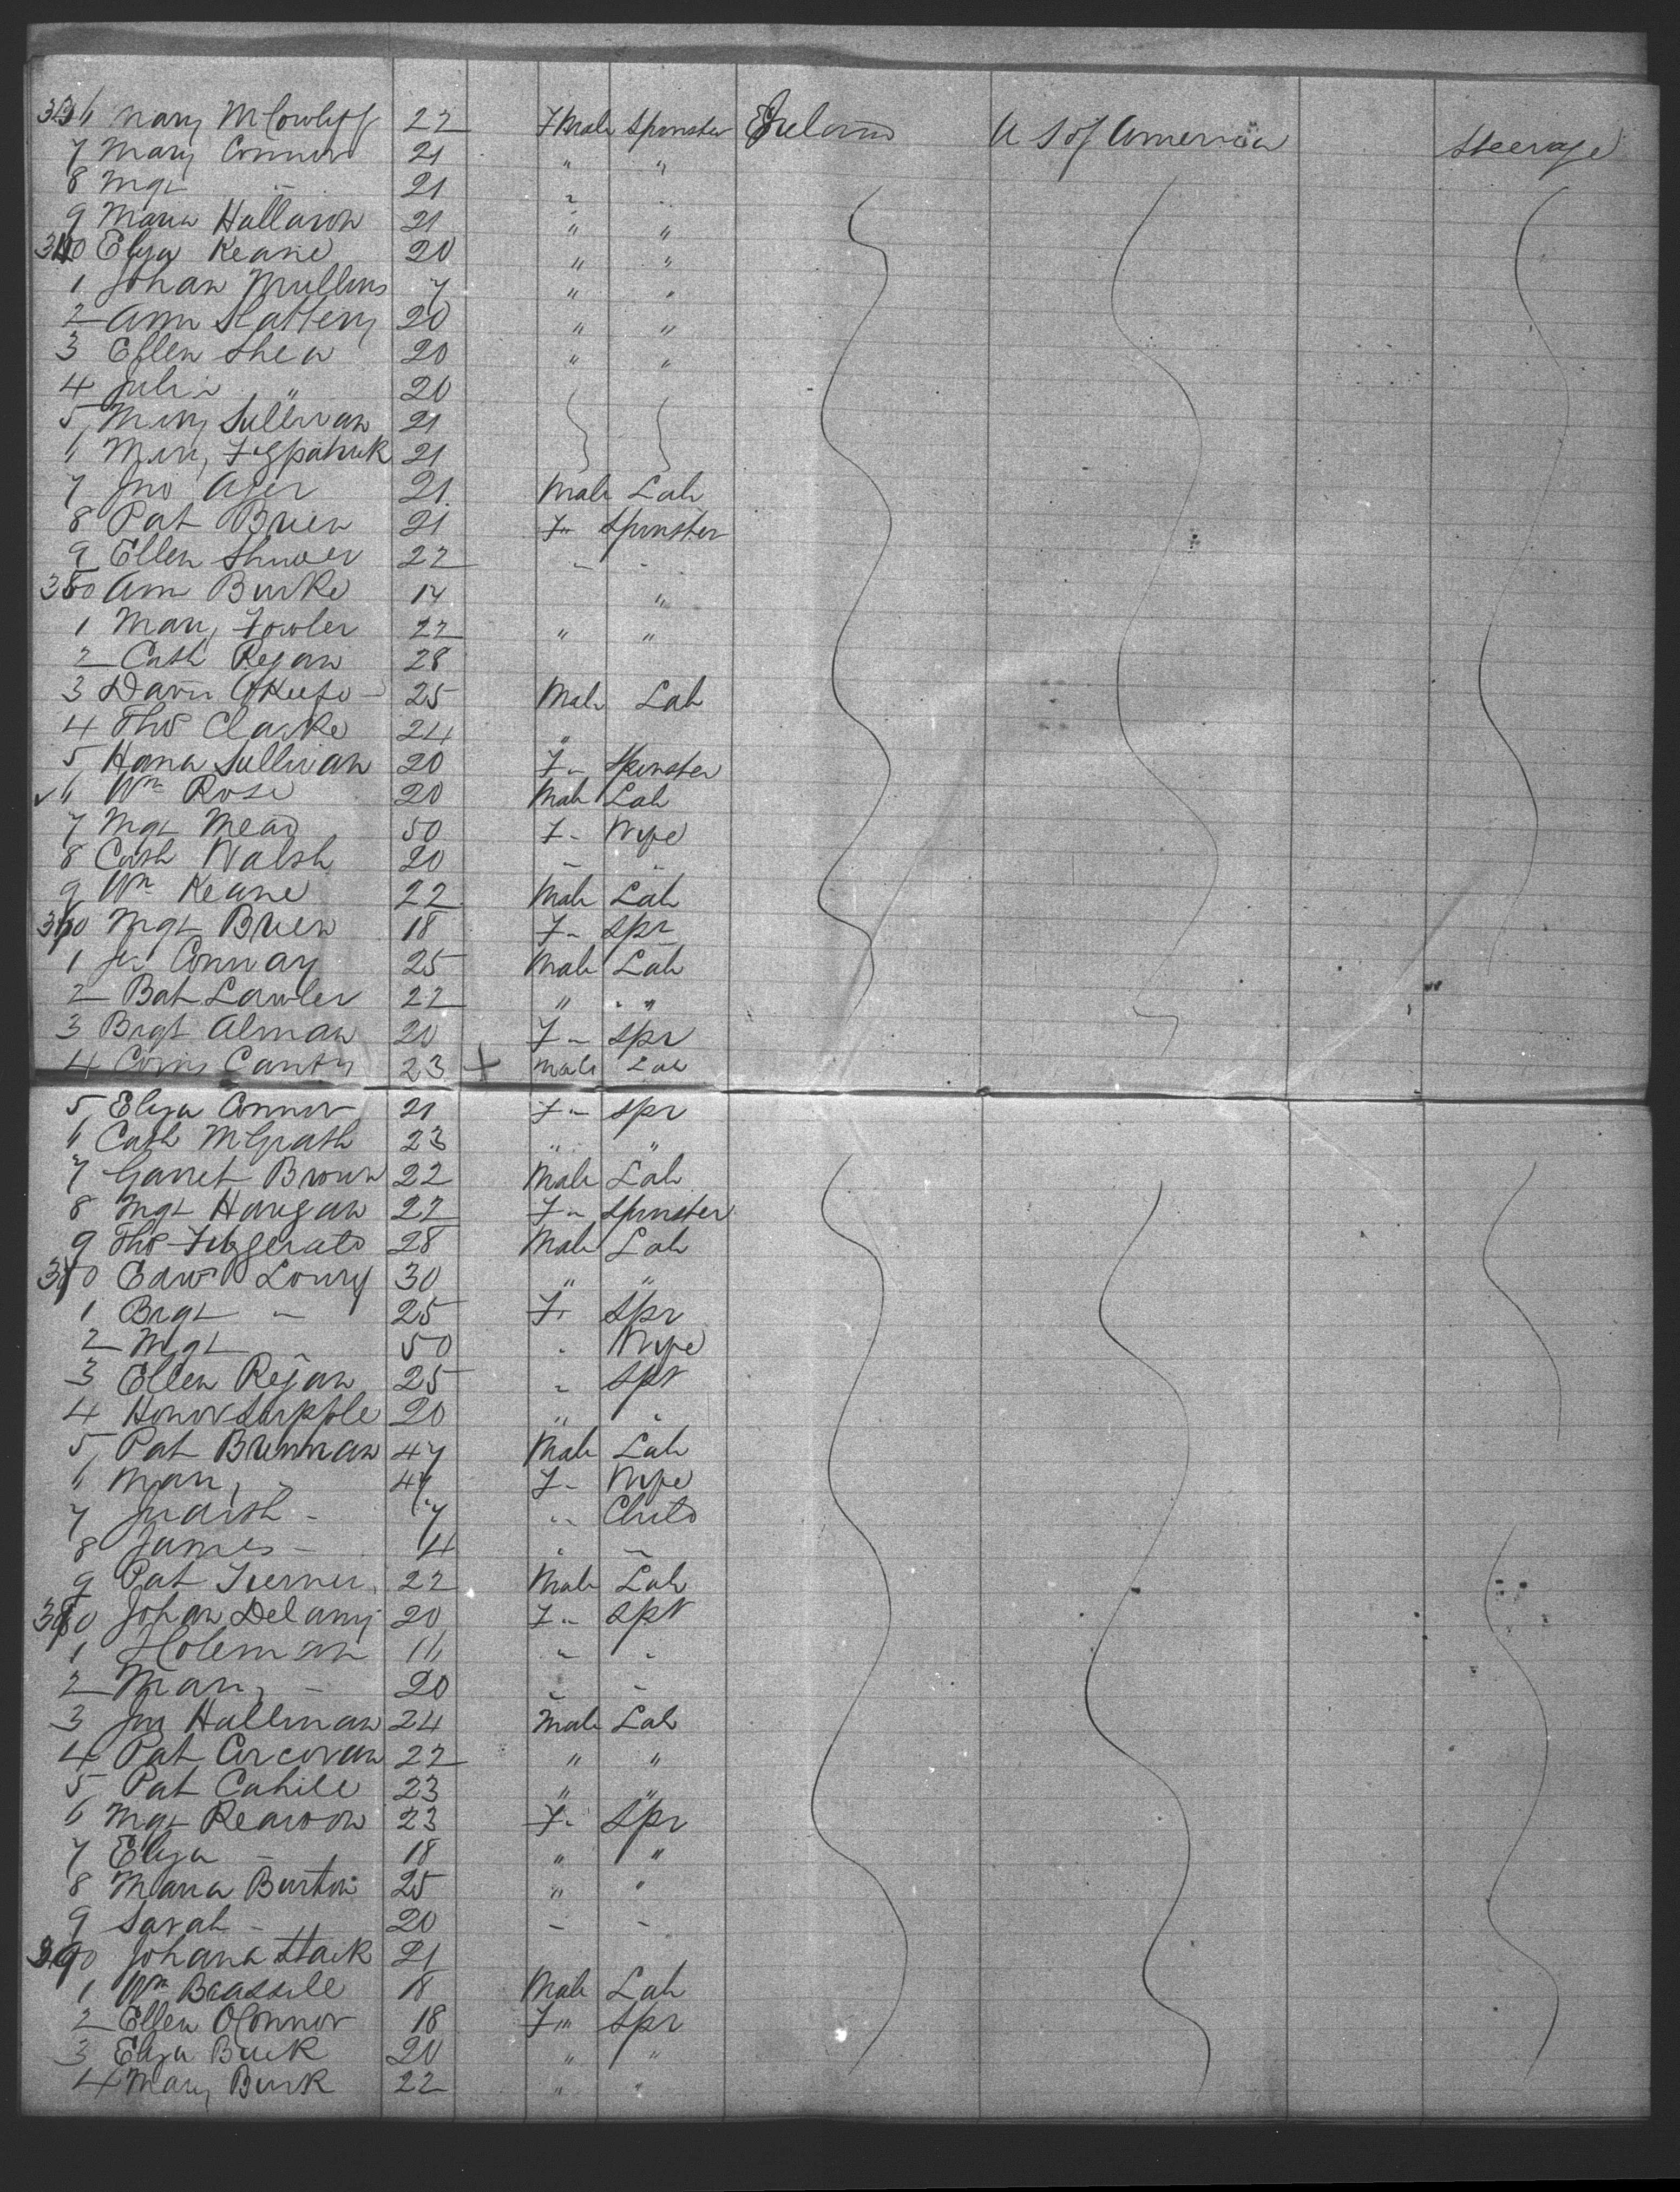 336 Mary McCowliff 22 FMale Spinster Ireland U S of America Steerage
7 Mary Connor 21 " "
8 Mgt - 21 " "
9 Maria Hallaron 21 " "
340 Eliza Keane 20 " "
1 Johan Mullins 7 " "
2 Ann Slattery 20 " "
3 Ellen Shea 20 " "
4 Julia " 20
5 Mary Sullivan 21
6 Mary Fizpatrick 21
7 Jno Ager 21 Male Lab
8 Pat Brien 21 F" Spinster
9 Ellen 22 " "
350 Ann Burke 14 "
1 Mary Fowler 22 " "
2 Cath Regan 28
3 David OKeefe 25 Male Lab
4 Thos Clarke 24 "
5 Hana Sullivan 20 F" Spinster
6 Wm Rose 20 Male Lab
7 Mgt Mead 50 F" Wife
8 Cath Walsh 20 " "
9 Wm Keane 22 Male Lab
360 Mgt Brien 18 F" Spr
1 Conway 25 Male Lab
2 Bat Lawler 22 " "
3 Brgt Alman 20 F" Spr
4 Corns Canty 23 + Male Lab
5 Eliza Connor 21 F" Spr
6 Cath McGrath 23 " "
7 Garret Brown 22 Male Lab
8 Mgt Haugan 22 F" Spinster
9 Thos Fitzgerald 28 Male Lab
370 Edwd Loury 30 " "
1 Brgt " 25 F" Spr
2 Mgt " 50 " Wife
3 Ellen Regan 25 " Spr
4 Honor Supple 20 " "
5 Pat Brennan 47 Male Lab
6 Mary " 47 F" Wife
7 Judith - 7 " Child
8 James - 4 " "
9 Pat 22 Male Lab
380 Johan Delany 20 F" Spr
1 Holeman 16 " "
2 Mary - 20 " "
3 Jno Hallinan 24 Male Lab
4 Pat Corcoran 22 " "
5 Pat Cahill 23 " "
6 Mgt Reardon 23 F" Spr
7 Eliza - 18 " "
8 Maria Burton 25 " "
9 Sarah - 20 " "
390 Johana Stack 21
1 Wm Brassile 18 Male Lab
2 Ellen OConnor 18 F" Spr
3 Eliza Buck 20 " "
4 Mary Burk 22 " "